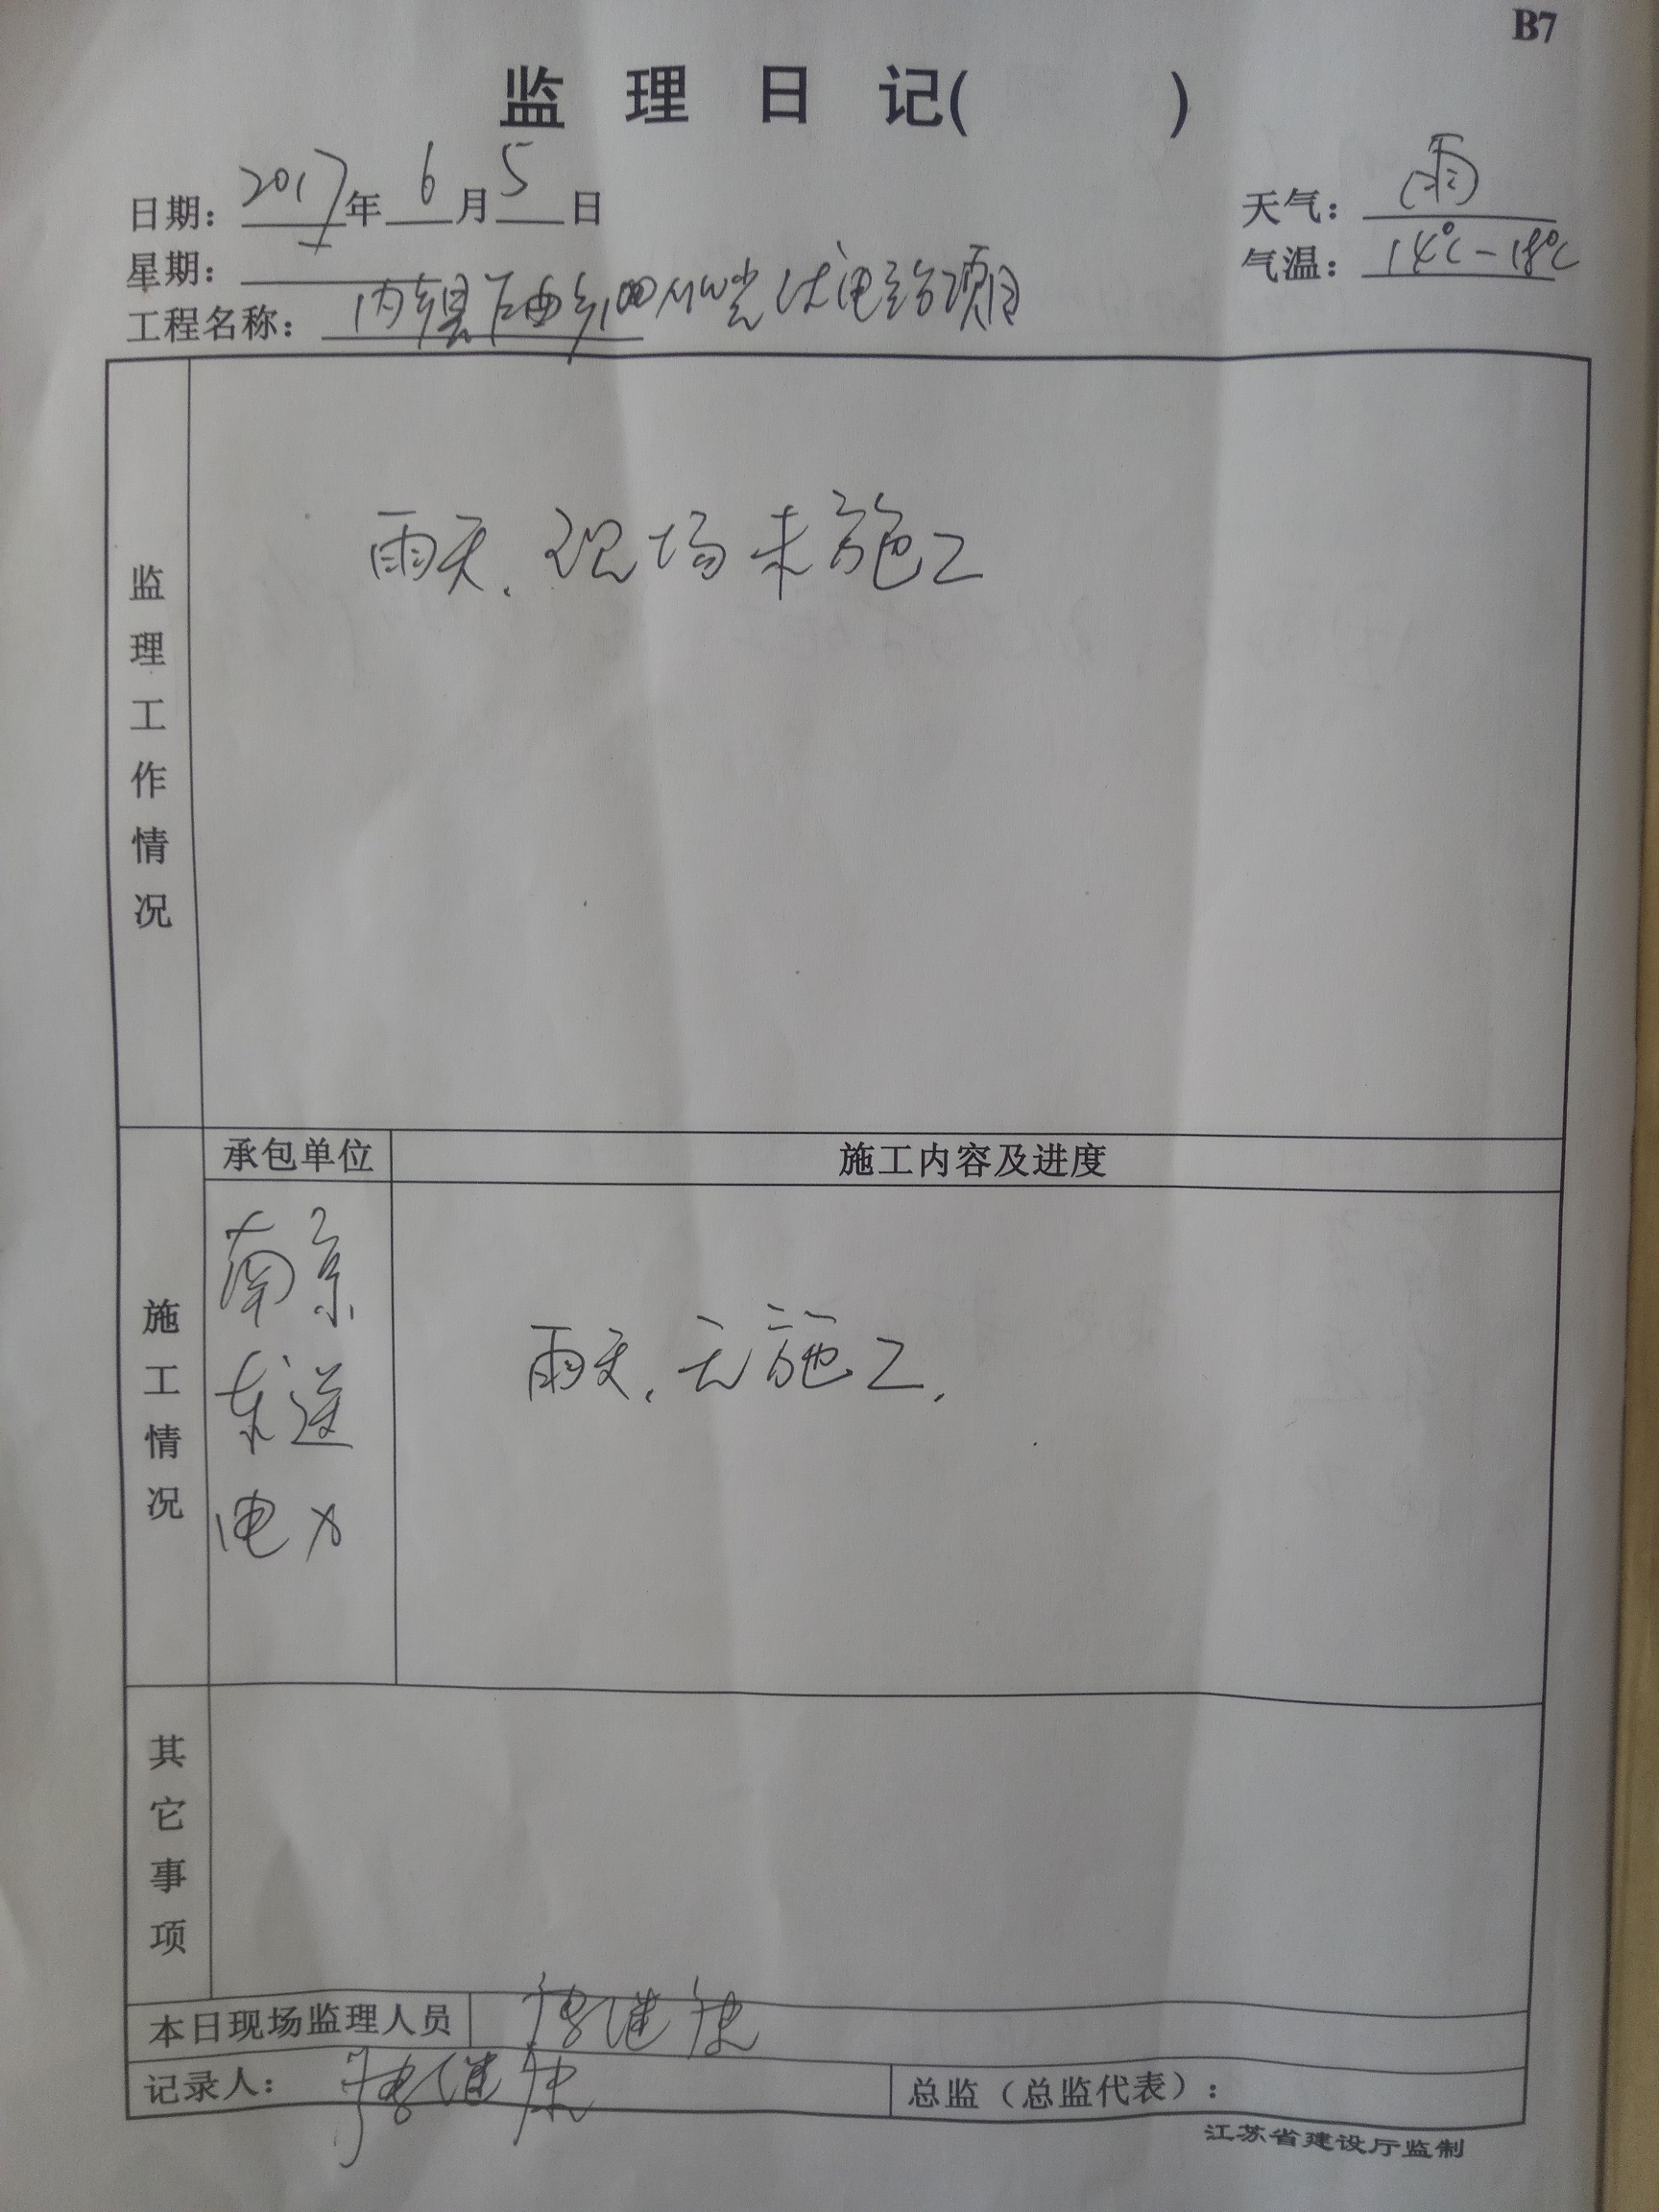 B7
监 理 日 记( )
日期: 2017年 6 月 5 日
天气: 雨
星期:
气温: 14℃-18℃
工程名称: 内乡县 西乡100MW光伏电站项目
监理工作情况
雨天. 现场未施工
承包单位
施工内容及进度
施工情况
南京
电力
雨天. 无施工.
其它事项
本日现场监理人员
记录人:
总监(总监代表):
江苏省建设厅监制